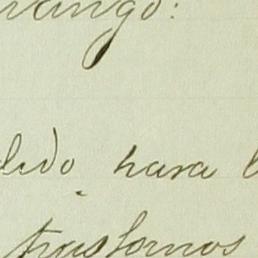 rango:
dido para l
trastornos